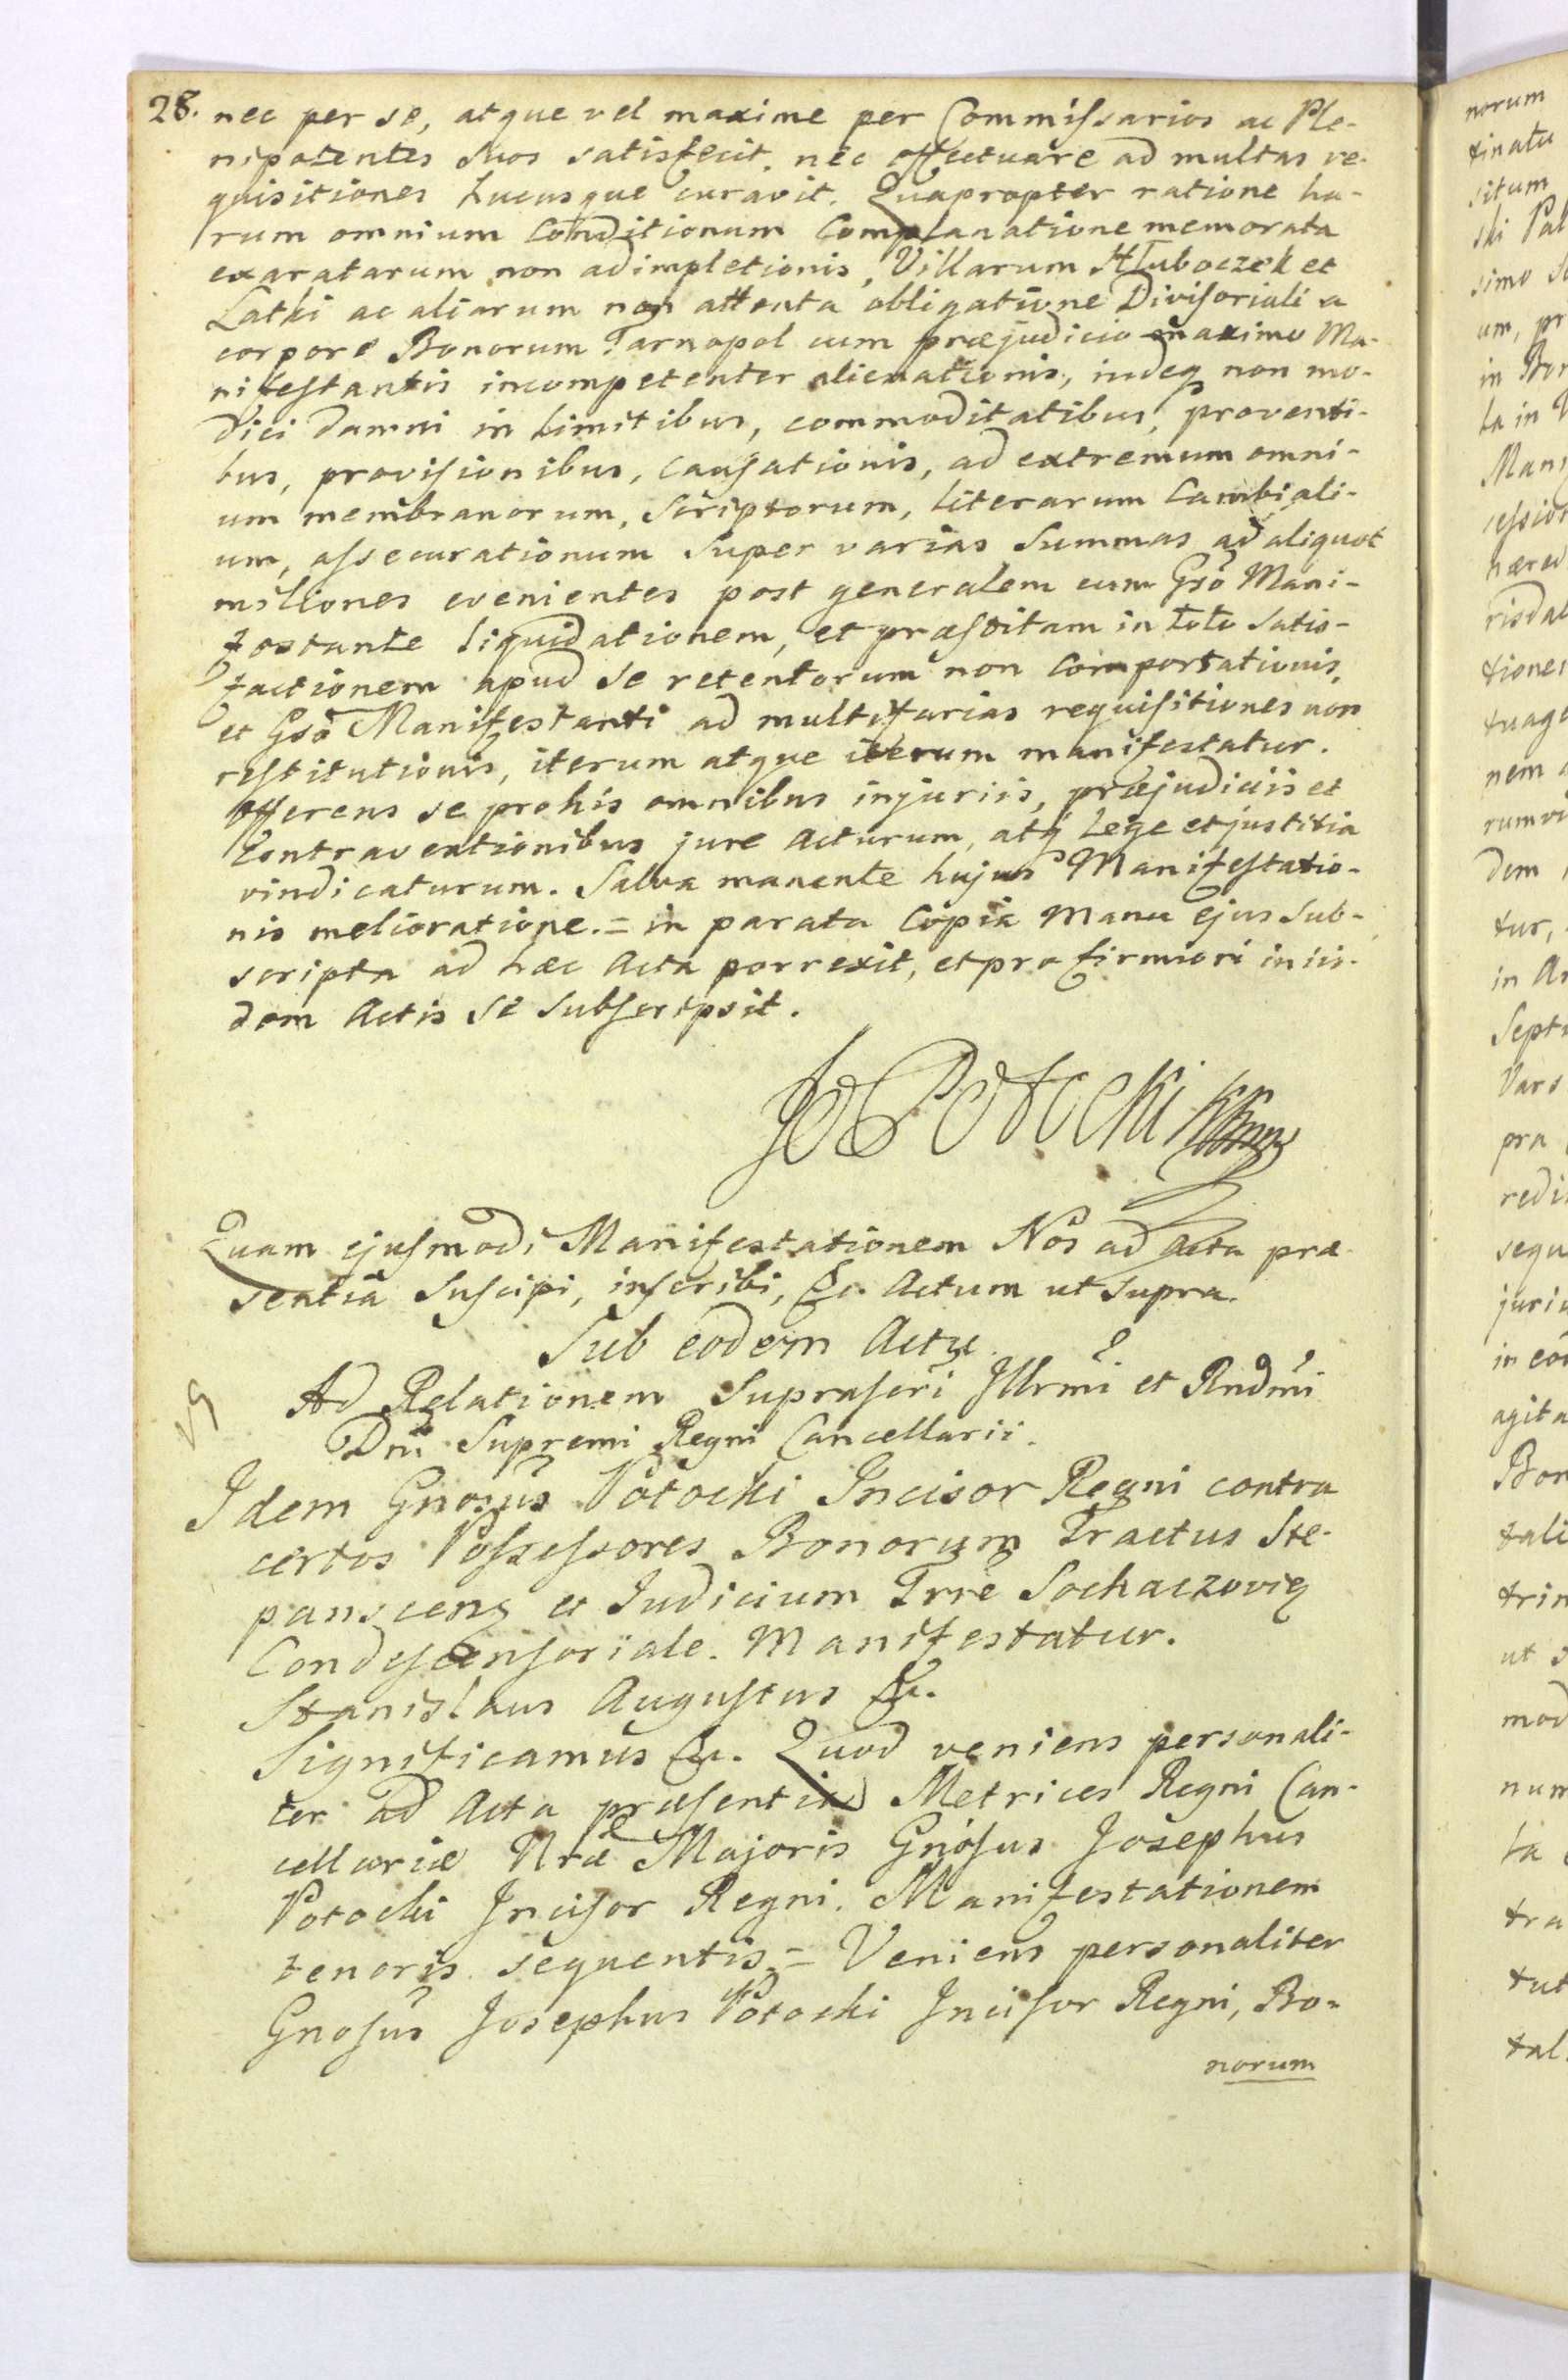 28. nec per se, atque vel maxime per Commissarios ac Ple-
nipotentes suos satisfecit, nec effectuare ad multas re-
quisitiones hucusque curavit. Quapropter ratione ha-
rum omnium Conditionum Complanatione memorata
exaratarum non adimpletionis, Villarum Hłuboczek et
Łatki ac aliarum non attenta obligatione Divisoriali a
corpore Bonorum Tarnopol cum præjudicio maximo Ma-
nifestantis incompetenter alienationis, indeq non mo-
dici damni in limitibus, commoditatibus, proventi-
bus, provisionibus, causationis, ad extremum omni-
um membranorum, Scriptorum, literarum Cambiali-
um, assecurationum Super varias Summas ad aliquot
miliones evenientes post generalem cum Gso Mani-
festante liquidationem, et præstitam in toto satis-
factionem apud se retentorum non Comportationis,
et Gso Manifestanti ad multifarias requisitiones non
restitutionis, iterum atque iterum manifestatur.
Offerens se pro his omnibus injuriis, præjudiciis et
Contraventionibus jure acturum, atq Lege et justitia
vindicaturum. Salva manente hujus Manifestatio-
nis melioratione. = in parata Copia Manu ejus Sub-
scripta ad hæc Acta porrexit, et pro firmiori in iis-
dem Actis se Subscripsit.
Jo Potocki
Quam ejusmodi Manifestationem Nos ad Acta præ-
sentia Suscipi, inscribi, &c. Actum ut Supra.
Sub eodem Actu.
Ad Relationem Suprascri Illrmi et Rndmi
Dni Supremi Regni Cancellarii.
Idem Gnosus Potocki Incisor Regni contra
certos Possessores Bonorum Tractus Ste-
panscens et Judicium Trre Sochaczovien
Condescensoriale. Manifestatur.
Stanislaus Augustus &c.
Significamus &c. Quod veniens personali-
ter ad Acta præsentia Metrices Regni Can-
cellariæ Nræ Majoris Gnosus Josephus
Potocki Incisor Regni. Manifestationem
tenoris sequentis. = Veniens personaliter
Gnosus Josephus Potocki Incisor Regni, Bo-
norum
norum
tinatu
situm
ski Pal
simo
um, pr
in Bon
ta in
Mani
cession
hæred
tiones
nem
rum
dem
tur,
in
Septi
Vars
pra
redi
sequ
juri
in eod
agita
Bon
tali
trin
ut
mod
num
ta
tra
tut
tal